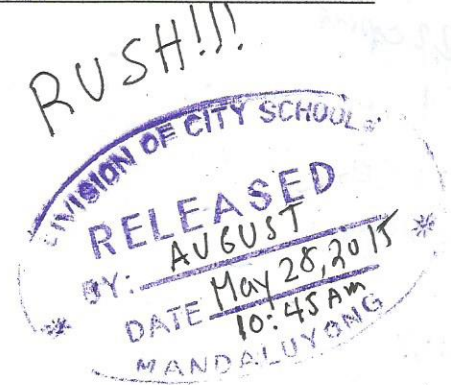 RUSH!!!
DIVISION OF CITY SCHOOLS
RELEASED
BY: AUGUST
DATE May 28, 2015
10:45 AM
MANDALUYONG